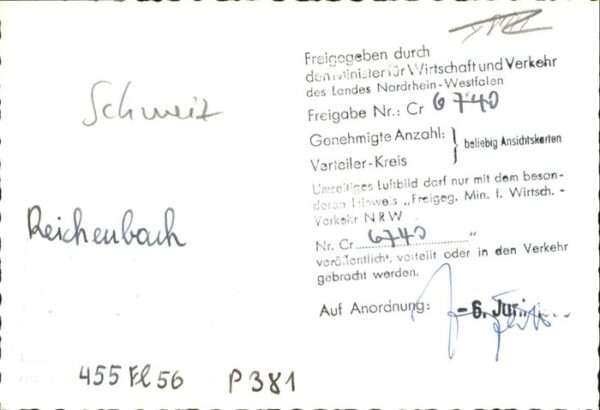 Schweiz
Reichenbach
455 Fl 56 P 381
Freigegeben durch
den Minister für Wirtschaft und Verkehr
des Landes Nordrhein-Westfalen
Freigabe Nr.: Cr 6740
Genehmigte Anzahl: } beliebig Ansichtskarten
Verteiler-Kreis
Umseitiges Luftbild darf nur mit dem beson-
deren Hinweis „Freigeg. Min. f. Wirtsch. -
Verkehr NRW
Nr. Cr 6740 "
veröffentlicht, verteilt oder in den Verkehr
gebracht werden.
Auf Anordnung: - 6. Juni